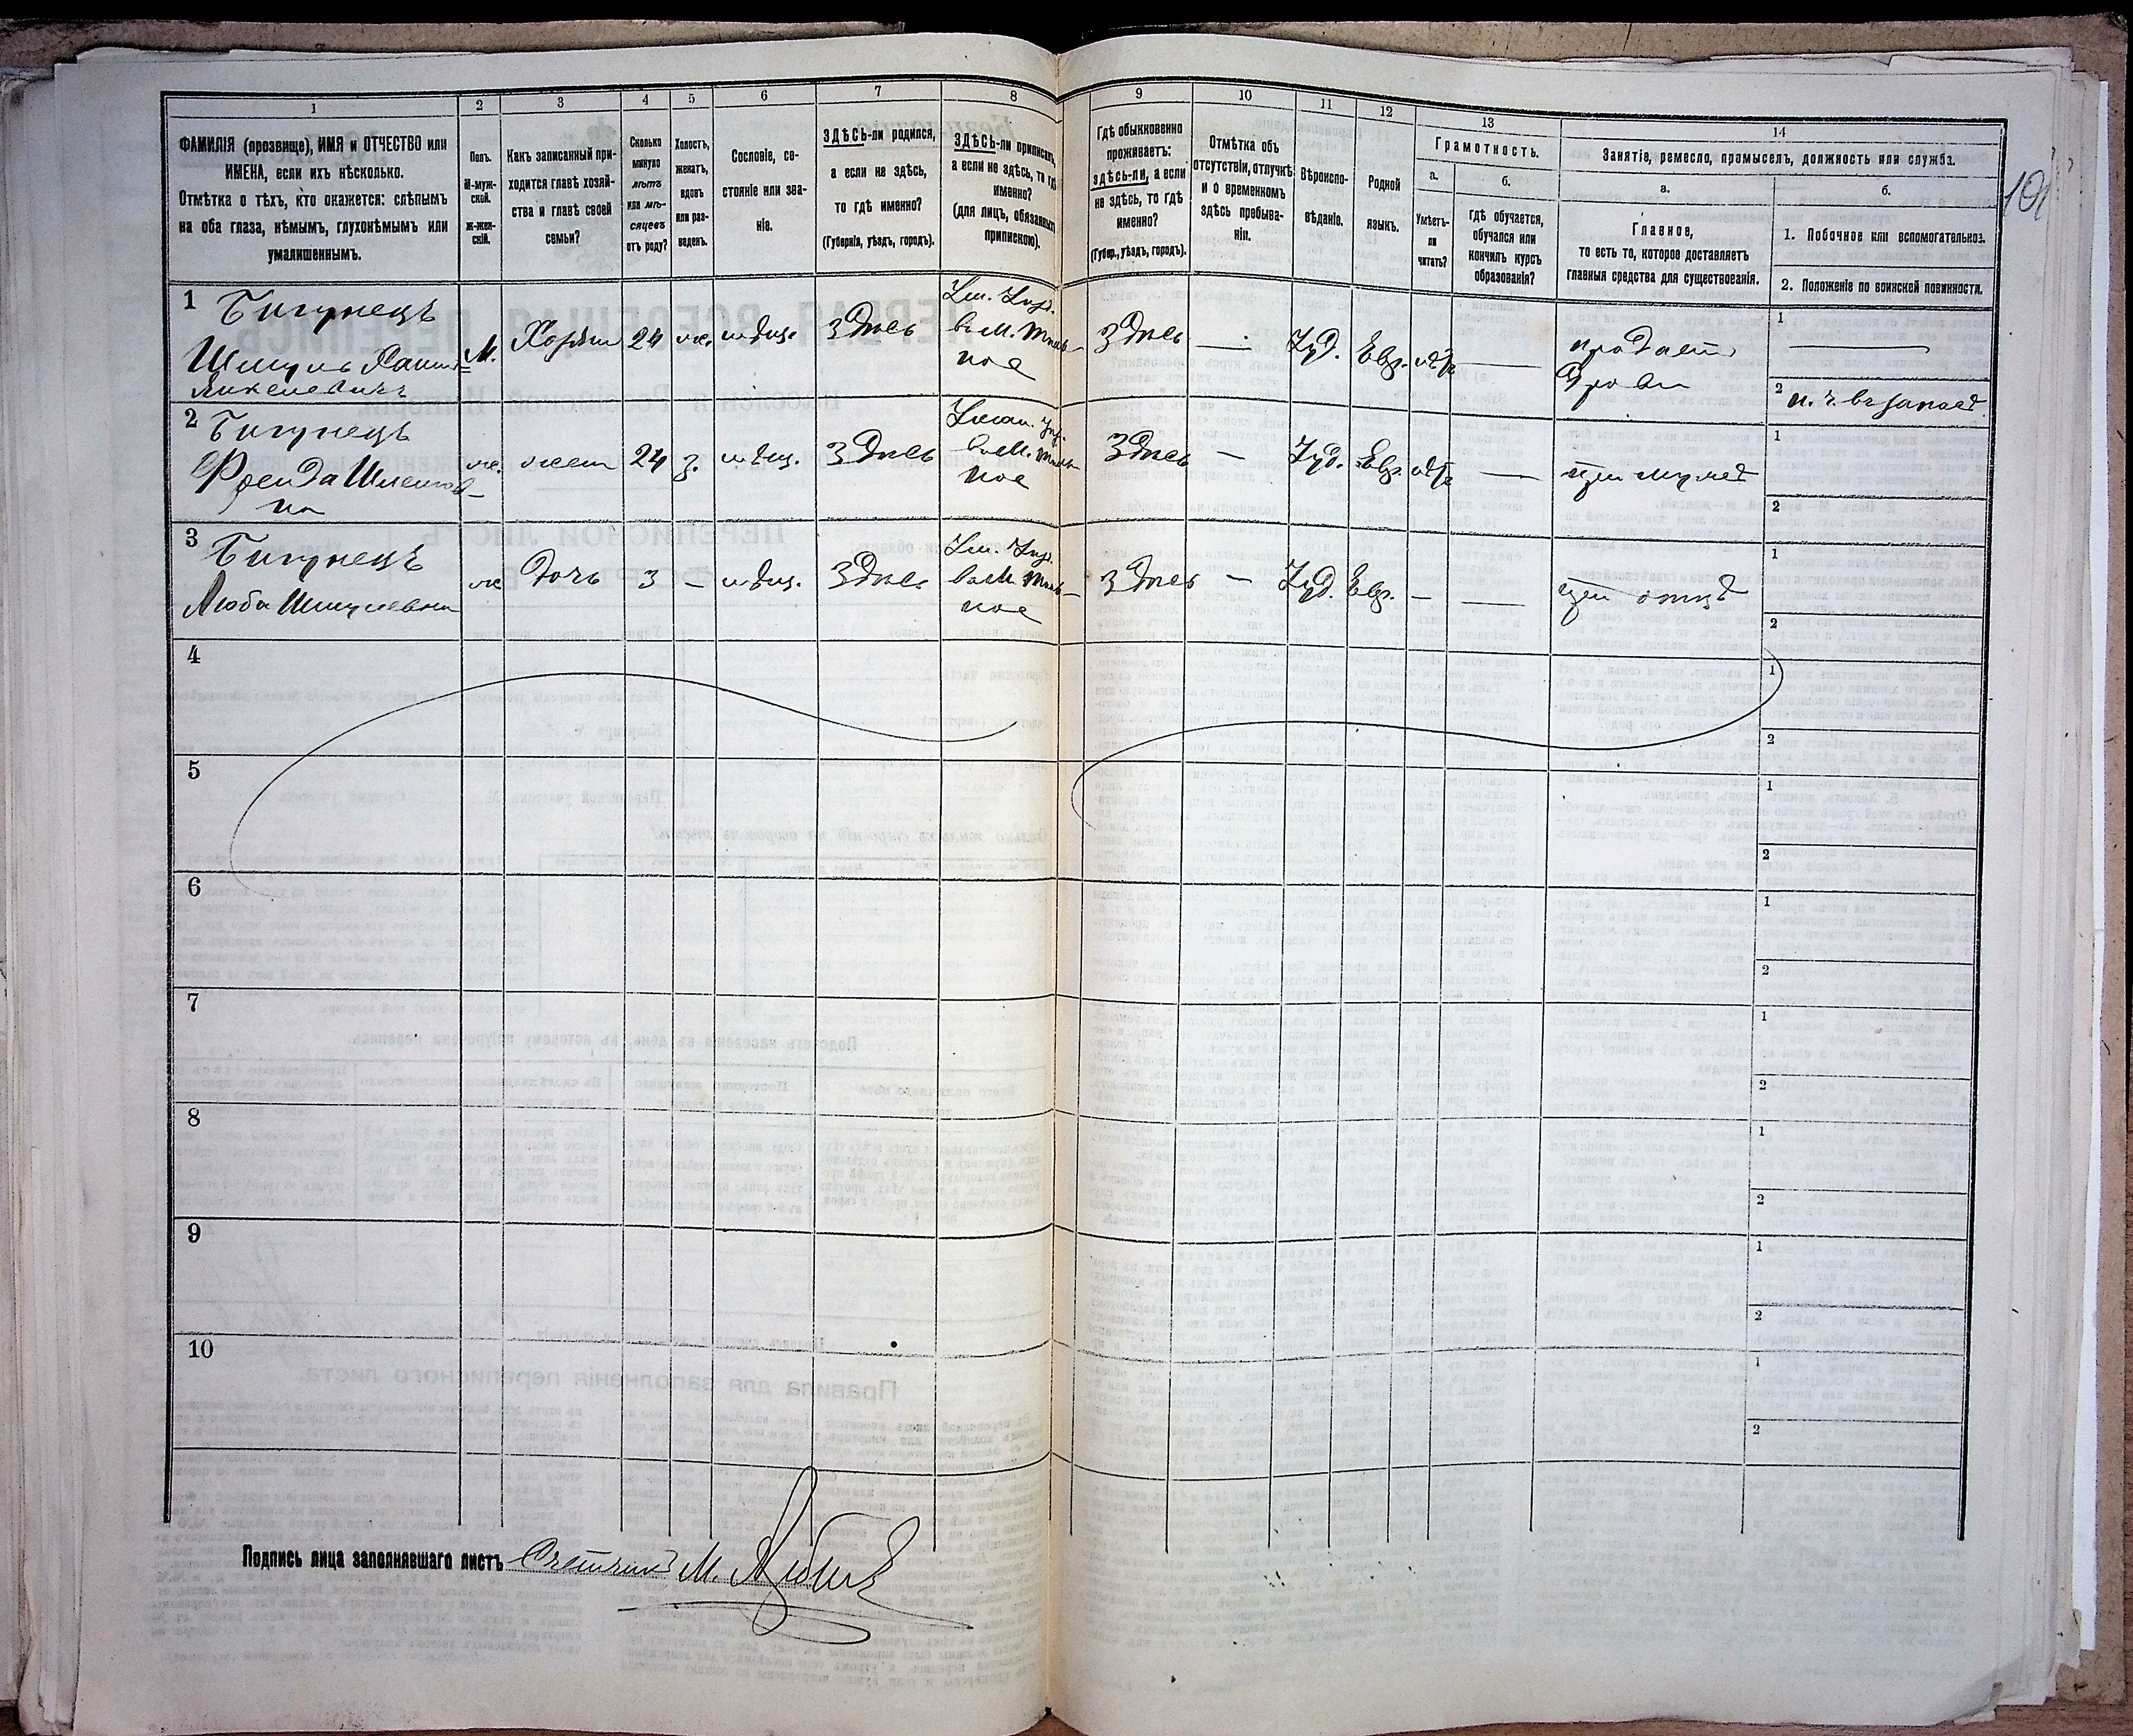 1
2
3
4
5
6
7
8
9
10
11
12
13
14
ФАМИЛІЯ (прозвище), ИМЯ и ОТЧЕСТВО или
ИМЕНА, если ихъ нѣсколько.
Отмѣтка о тѣхъ, кто окажется: слѣпымъ
на оба глаза, нѣмымъ, глухонѣмымъ или
умалишеннымъ.
Полъ.
М-муж-
ской.
Ж-жен-
скій.
Какъ записанный при-
ходится главѣ хозяй-
ства и главѣ своей
семьи?
Сколько
минуло
лѣтъ
или мѣ-
сяцевъ
отъ роду?
Холостъ,
женатъ,
вдовъ
или раз-
веденъ.
Сословіе, со-
стояніе или зва-
ніе.
ЗДѢСЬ-ли родился,
а если не здѣсь,
то гдѣ именно?
(Губернія, уѣздъ, городъ).
ЗДѢСЬ-ли приписанъ,
а если не здѣсь, то гдѣ
именно?
(для лицъ, обязанныхъ
припискою).
Гдѣ обыкновенно
проживаетъ:
здѣсь-ли, а если
не здѣсь, то гдѣ
именно?
(Губер., уѣздъ, городъ).
Отмѣтка объ
отсутствіи, отлучкѣ
и о временномъ
здѣсь пребыва-
ніи.
Вѣроиспо-
вѣданіе.
Родной
языкъ.
Грамотность.
а.
Умѣетъ-
ли
читать?
б.
гдѣ обучается,
обучался или
кончилъ курсъ
образованія?
Занятіе, ремесло, промыселъ, должность или служба.
а.
Главное,
то есть то, которое доставляетъ
главныя средства для существованія.
б.
1. Побочное или вспомогательное.
2. Положеніе по воинской повинности.
101
1 Бигунецъ
М.
24
мѣщ.
Здѣсь
ное
Здѣсь —
Іуд.
Евр.
нѣтъ —
продаетъ
дрова
1 —
2
2 Бигунецъ
Фрейда
на
ж.
жена
24
з.
мѣщ.
Здѣсь
ное
Здѣсь
—
Іуд.
Евр.
нѣтъ
—
при мужѣ
1
2
3 Бигунецъ
Люба Шмулевна
ж
дочь
3
—
мѣщ.
Здѣсь
ное
Здѣсь
—
Іуд.
Евр.
—
—
при отцѣ
1
2
4
1
2
5
1
2
6
1
2
7
1
2
8
1
2
9
1
2
10
1
2
Подпись лица заполнявшаго листъ Счетчикъ М.